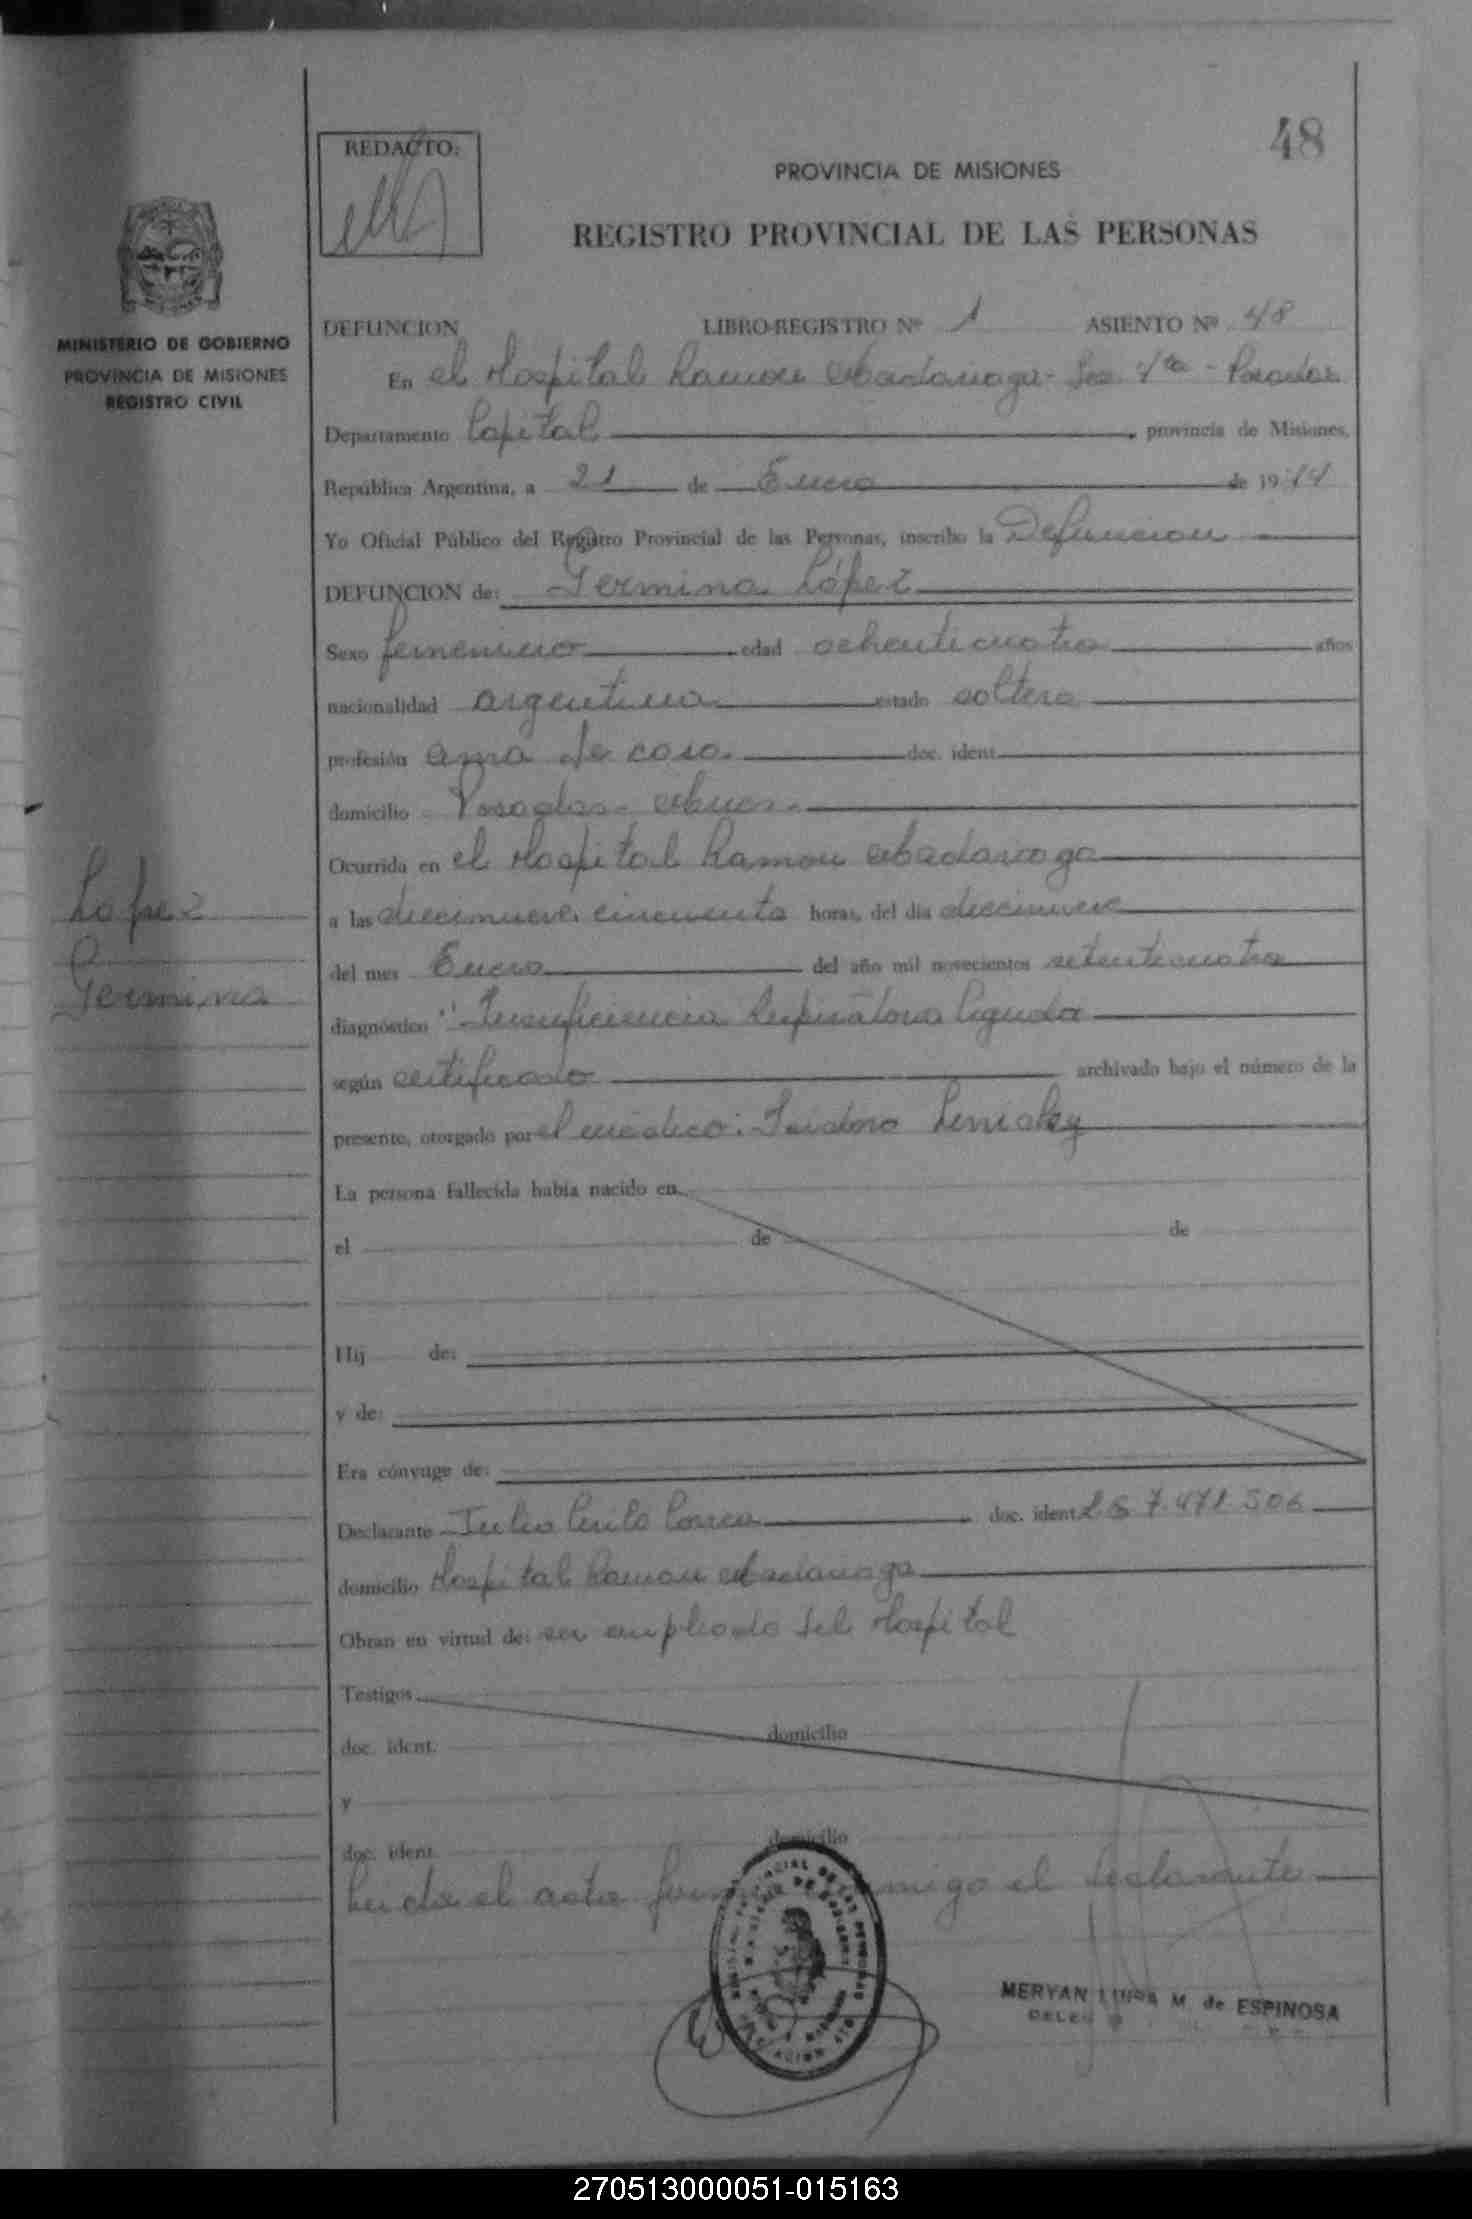 48
REDACTO:
PROVINCIA DE MISIONES
REGISTRO PROVINCIAL DE LAS PERSONAS
MINISTERIO DE GOBIERNO
PROVINCIA DE MISIONES
REGISTRO CIVIL
DEFUNCION LIBRO-REGISTRO Nº 1 ASIENTO Nº 48
En el Hospital Ramon Abadariaga - Sec 4ta - Posadas
Departamento Capital, provincia de Misiones,
República Argentina, a 21 de Enero de 1974
Yo Oficial Público del Registro Provincial de las Personas, inscribo la Defuncion
DEFUNCION de: Germina López
Sexo femenino edad ochenticuatro años
nacionalidad argentina estado soltera
profesión ama de casa. doc. ident.
domicilio Posadas-
Ocurrida en el Hospital Ramon Abadariaga
a las diecinueve cincuenta horas, del día diecinueve
del mes Enero del año mil novecientos setenticuatro
diagnóstico "Insuficiencia Respiratoria Aguda
según certificado archivado bajo el número de la
presente, otorgado por el médico: Isidoro
La persona fallecida había nacido en
el de de
Hij de:
y de:
Era cónyuge de:
Declarante Julio Cirilo Correa doc. ident. 7.471.506
domicilio Hospital Ramon Abadariaga
Obran en virtud de: ser empleado del Hospital
Testigos
doc. ident. domicilio
y
doc. ident. domicilio
Leida el acta el declarante
Lopez
Germina
MERYAN M. de ESPINOSA
270513000051-015163